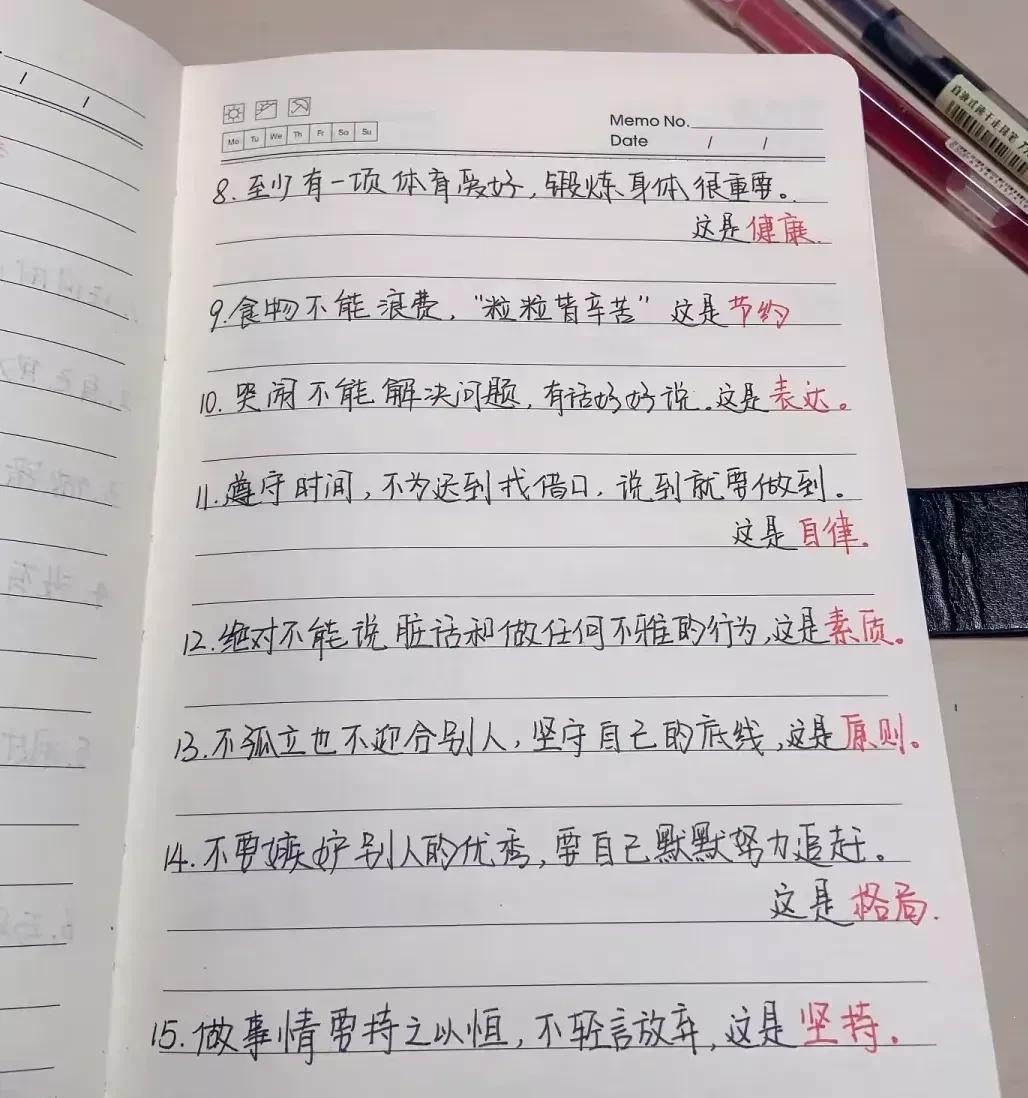 Mo Tu We Th Fr Sa Su
Memo No.
Date / /
8.至少有一项体育爱好,锻炼身体很重要。
这是健康.
9.食物不能浪费,"粒粒皆辛苦"这是节约
10.哭闹不能解决问题,有话好好说.这是表达。
11.遵守时间,不为迟到找借口.说到就要做到.
这是自律.
12.绝对不能说脏话和做任何不雅的行为,这是素质。
13.不孤立也不迎合别人,坚守自己的底线,这是原则。
14.不要嫉妒别人的优秀,要自己默默努力追赶。
这是格局.
15.做事情要持之以恒,不轻言放弃,这是坚持.